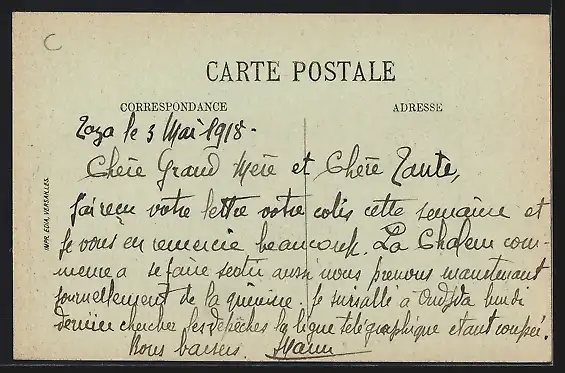 C
CARTE POSTALE
CORRESPONDANCE
ADRESSE
Taza le 3 Mai 1918.
Chère Grand Mère et Chère Tante,
J'ai reçu votre lettre votre colis cette semaine et
je vous en remercie beaucoup. La Chaleur com-
mence a se faire sentir aussi nous prenons maintenant
journellement de la quinine. Je suis allé à Oudjda lundi
dernier chercher les dépêches la ligne télégraphique etant coupée.
Bons baisers.
IMP. EDIA, VERSAILLES.